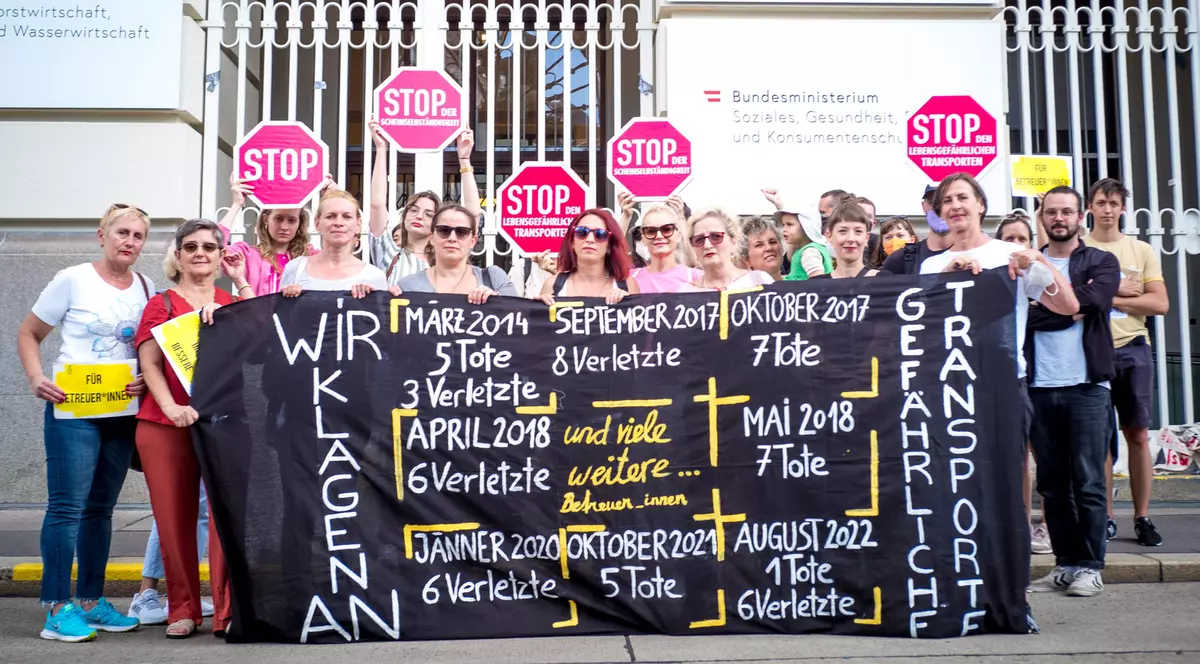 orstwirtschaft,
d Wasserwirtschaft
Bundesministerium
Soziales, Gesundheit,
und Konsumentenschu
STOP
STOP DER
SCHEINSELBSTÄNDIGKEIT
STOP DEN
LEBENSGEFÄHRLICHEN
TRANSPORTEN
STOP DER
SCHEINSELBSTÄNDIGKEIT
STOP DEN
LEBENSGEFÄHRLICHEN
TRANSPORTEN
FÜR
BETREUER*INNEN
FÜR
BETREUER*INNEN
WIR
KLAGEN
AN
MÄRZ 2014
5 Tote
3 Verletzte
SEPTEMBER 2017
8 Verletzte
OKTOBER 2017
7 Tote
APRIL 2018
6 Verletzte
und viele
weitere...
Betreuer_innen
MAI 2018
7 Tote
JÄNNER 2020
6 Verletzte
OKTOBER 2021
5 Tote
AUGUST 2022
1 Tote
6 Verletzte
GEFÄHRLICHE
TRANSPORTE